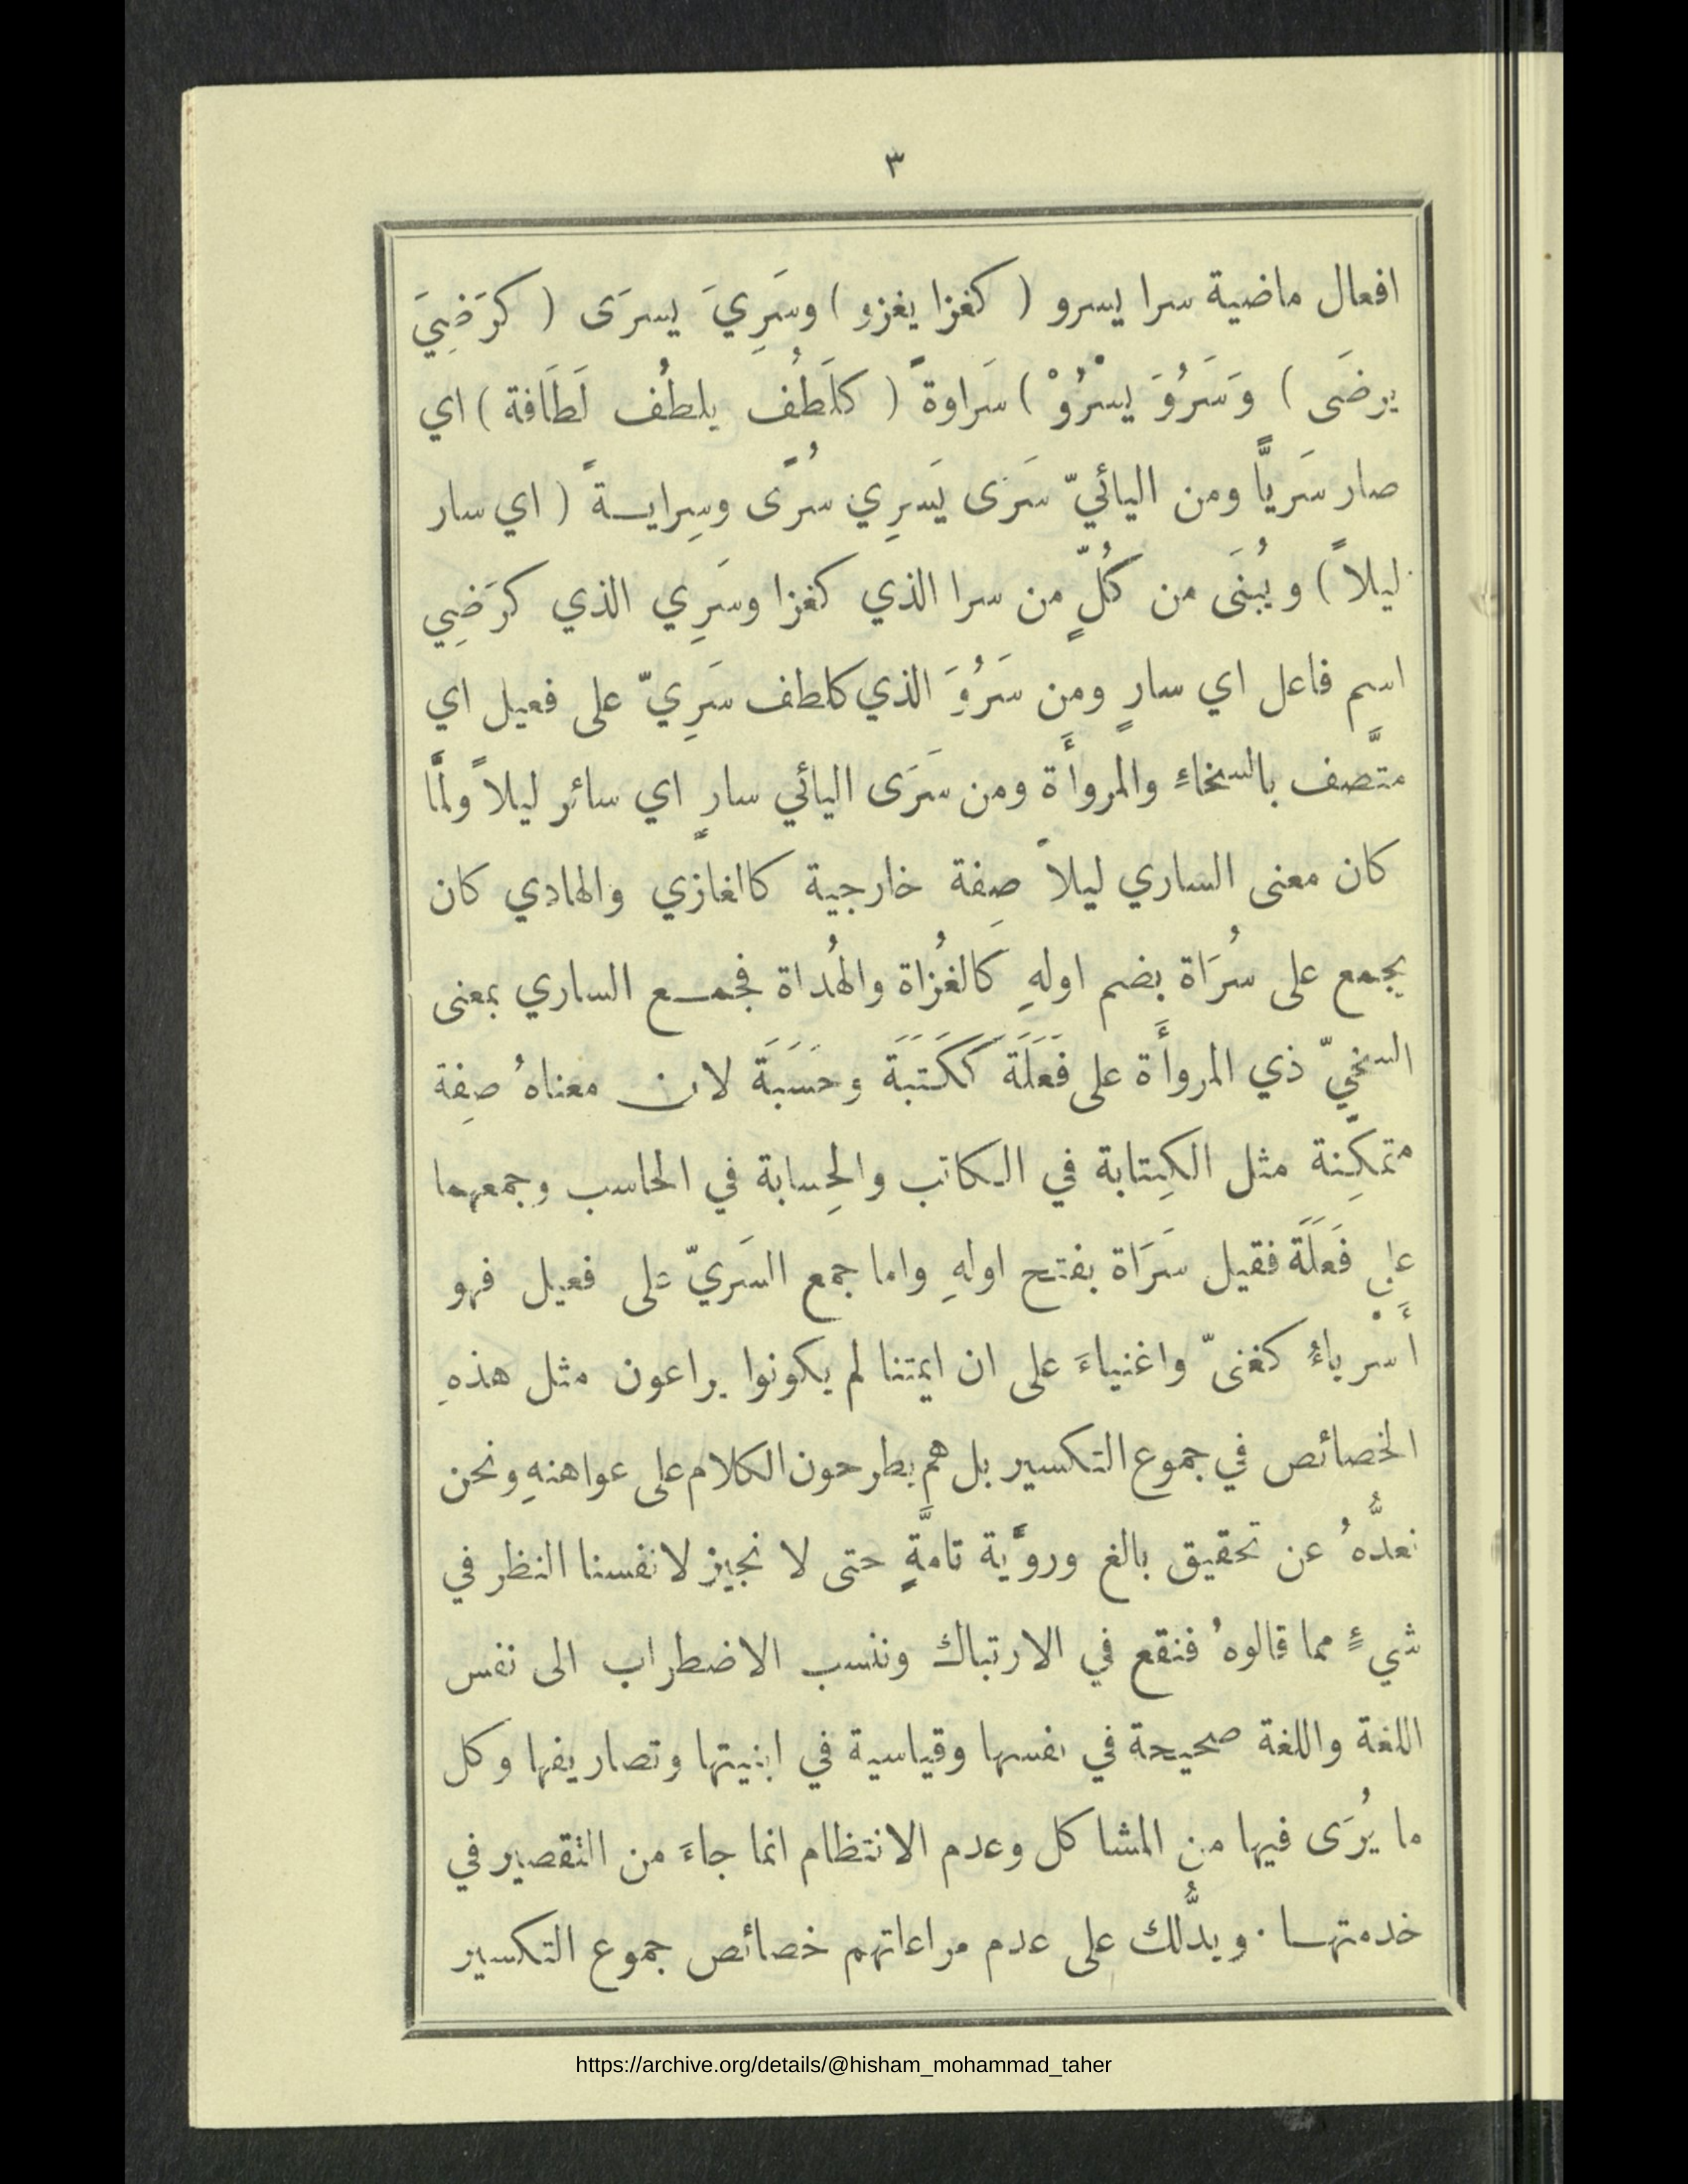 ٣
افعال ماضية سرا يسرو ( كغزا يغزو ) وسَرِيَ يسرَى ( كرَضِيَ
يرضَى ) وَسَرُوَ يسْرُوْ ) سَراوةً ( كلَطُف يلطُف لَطَافة ) اي
صار سَريًّا ومن اليائيّ سَرَى يَسرِي سُرًى وسِرايـةً ( اي سار
ليلاً ) ويُبنَى من كُلٍّ من سرا الذي كغزا وسَرِي الذي كرَضِي
اسم فاعل اي سارٍ ومن سَرُوَ الذي كلطف سَرِيّ على فعيل اي
متَّصف بالسخاءِ والمروأَة ومن سَرَى اليائي سارٍ اي سائر ليلاً ولمَّا
كان معنى الساري ليلاً صِفة خارجية كالغازي والهادي كان
يجمع على سُرَاة بضم اولهِ كَالغُزاة والهُداة فجمـع الساري بمعنى
السخيّ ذي المروأَة على فَعَلَة كَكَتَبَة وحَسَبَة لان معناهُ صِفة
متمكّنة مثل الكِتابة في الكاتب والحِسابة في الحاسب وجمعهما
على فَعَلَة فقيل سَرَاة بفتح اولهِ واما جمع السَريّ على فعيل فهو
أَسْرياءُ كغنيّ واغنياءَ على ان ايمتنا لم يكونوا يراعون مثل هذهِ
الخصائص في جموع التكسير بل هم يطرحون الكلام على عواهنهِ ونحن
نعدُّهُ عن تحقيق بالغ وروَّية تامَّةٍ حتى لا نجيز لانفسنا النظر في
شيءٍ مما قالوهُ فنقع في الارتباك وننسب الاضطراب الى نفس
اللغة واللغة صحيحة في نفسها وقياسية في ابنيتها وتصاريفها وكل
ما يُرَى فيها من المشاكل وعدم الانتظام انما جاءَ من التقصير في
خدمتهـا · ويدُّلك على عدم مراعاتهم خصائص جموع التكسير
https://archive.org/details/@hisham_mohammad_taher